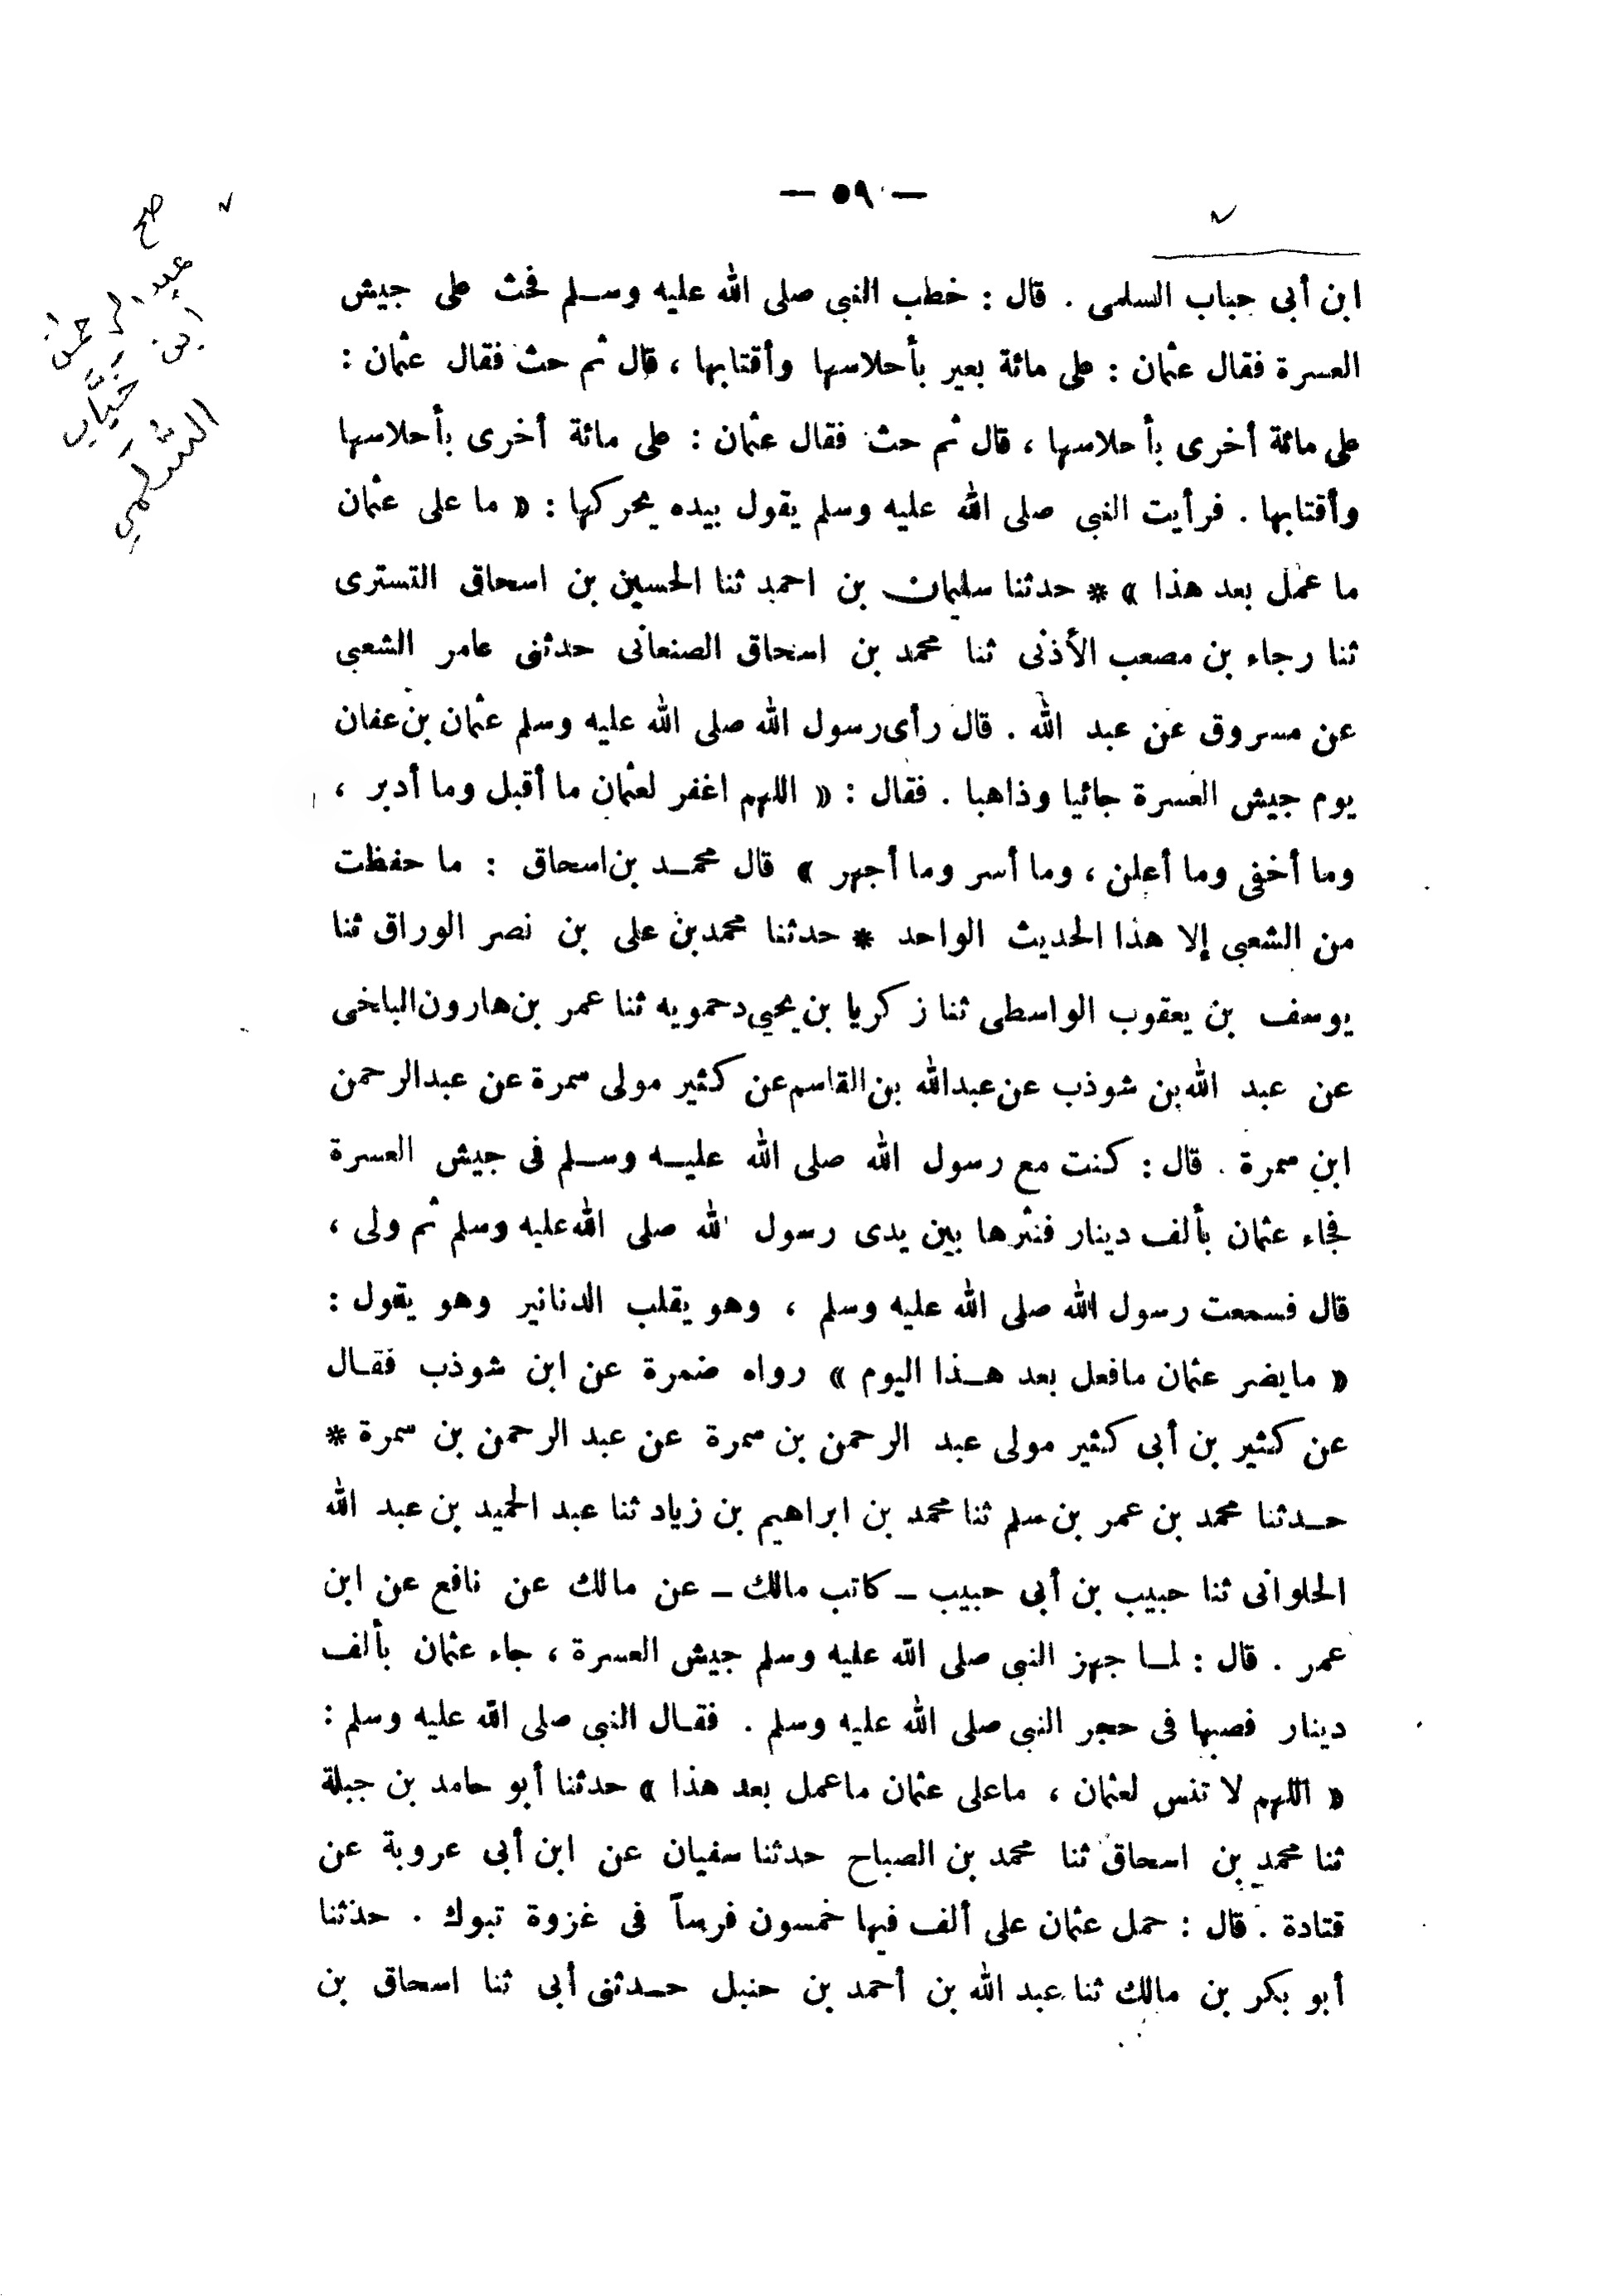 — ٥٩ —
ابن أبى حباب السلمى . قال : خطب النبى صلى الله عليه وسلم فحث على جيش
العسرة فقال عثمان : على مائة بعير بأحلاسها وأقتابها ، قال ثم حث فقال عثمان :
على مائة أخرى بأحلاسها ، قال ثم حث فقال عثمان : على مائة أخرى بأحلاسها
وأقتابها . فرأيت النبى صلى الله عليه وسلم يقول بيده يحركها : « ما على عثمان
ما عمل بعد هذا » * حدثنا سليمان بن احمد ثنا الحسين بن اسحاق التسترى
ثنا رجاء بن مصعب الأذنى ثنا محمد بن اسحاق الصنعانى حدثنى عامر الشعبى
عن مسروق عن عبد الله . قال رأى رسول الله صلى الله عليه وسلم عثمان بن عفان
يوم جيش العسرة جائيا وذاهبا . فقال : « اللهم اغفر لعثمان ما أقبل وما أدبر ،
وما أخفى وما أعلن ، وما أسر وما أجهر » قال محمد بن اسحاق : ما حفظت
من الشعبى إلا هذا الحديث الواحد * حدثنا محمد بن على بن نصر الوراق ثنا
يوسف بن يعقوب الواسطى ثنا زكريا بن يحيى دحمويه ثنا عمر بن هارون الباخى
عن عبد الله بن شوذب عن عبدالله بن القاسم عن كثير مولى سمرة عن عبدالرحمن
ابن سمرة . قال : كنت مع رسول الله صلى الله عليه وسلم فى جيش العسرة
فجاء عثمان بألف دينار فنثرها بين يدى رسول لله صلى الله عليه وسلم ثم ولى ،
قال فسمعت رسول الله صلى الله عليه وسلم ، وهو يقلب الدنانير وهو يقول :
« مايضر عثمان مافعل بعد هذا اليوم » رواه ضمرة عن ابن شوذب فقال
عن كثير بن أبى كثير مولى عبد الرحمن بن سمرة عن عبد الرحمن بن سمرة *
حدثنا محمد بن عمر بن سلم ثنا محمد بن ابراهيم بن زياد ثنا عبد الحميد بن عبد الله
الحلوانى ثنا حبيب بن أبى حبيب – كاتب مالك – عن مالك عن نافع عن ابن
عمر . قال : لما جهز النبى صلى الله عليه وسلم جيش العسرة ، جاء عثمان بألف
دينار فصبها فى حجر النبى صلى الله عليه وسلم . فقال النبى صلى الله عليه وسلم :
« اللهم لا تنس لعثمان ، ماعلى عثمان ماعمل بعد هذا » حدثنا أبو حامد بن جبلة
ثنا محمد بن اسحاق ثنا محمد بن الصباح حدثنا سفيان عن ابن أبى عروبة عن
قتادة . قال : حمل عثمان على ألف فيها خمسون فرساً فى غزوة تبوك . حدثنا
أبو بكر بن مالك ثنا عبد الله بن أحمد بن حنبل حدثنى أبى ثنا اسحاق بن
صح
عبد الرحمن
ابن
خَبَّاب
السُّلَمي